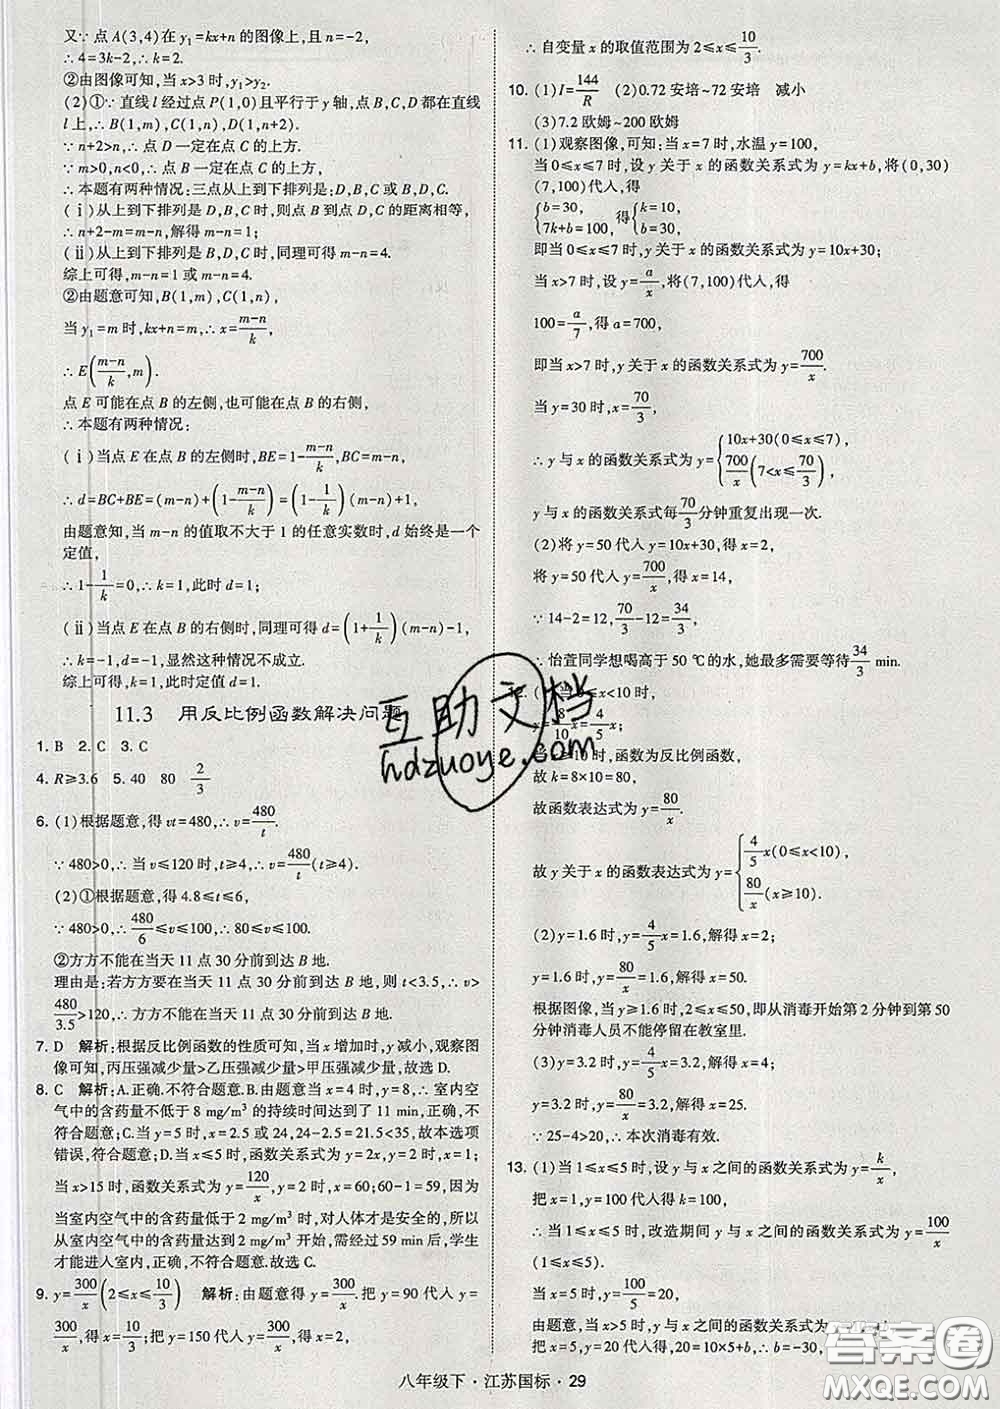 又∵ 点 A(3,4)在 y₁=kx+n 的图像上,且 n=-2,
∴ 4=3k-2,∴ k=2.
②由图像可知,当 x>3 时,y₁>y₂.
(2)①∵ 直线 l 经过点 P(1,0)且平行于 y 轴,点 B,C,D 都在直线
l 上,∴ B(1,m),C(1,n),D(1,n+2).
∵ n+2>n,∴ 点 D 一定在点 C 的上方;
∵ m>0,n<0,∴ 点 B 一定在点 C 的上方.
∴ 本题有两种情况:三点从上到下排列是:D,B,C 或 B,D,C.
(ⅰ)从上到下排列是 D,B,C 时,则点 B 到点 D,C 的距离相等,
∴ n+2-m=m-n,解得 m-n=1;
(ⅱ)从上到下排列是 B,D,C 时,同理可得,m-n=4.
综上可得,m-n=1 或 m-n=4.
②由题意可知,B(1,m),C(1,n),
当 y₁=m 时,kx+n=m,∴ x=(m-n)/k,
∴ E((m-n)/k,m).
点 E 可能在点 B 的左侧,也可能在点 B 的右侧,
∴ 本题有两种情况:
(ⅰ)当点 E 在点 B 的左侧时,BE=1-(m-n)/k,BC=m-n,
∴ d=BC+BE=(m-n)+(1-(m-n)/k)=(1-1/k)(m-n)+1,
由题意知,当 m-n 的值取不大于 1 的任意实数时,d 始终是一个
定值,
∴ 1-1/k=0,∴ k=1,此时 d=1;
(ⅱ)当点 E 在点 B 的右侧时,同理可得 d=(1+1/k)(m-n)-1,
∴ k=-1,d=-1,显然这种情况不成立.
综上可得,k=1,此时定值 d=1.
11.3 用反比例函数解决问题
1. B 2. C 3. C
4. R≥3.6 5. 40 80 2/3
6. (1)根据题意,得 vt=480,∴ v=480/t.
∵ 480>0,∴ 当 v≤120 时,t≥4,∴ v=480/t(t≥4).
(2)①根据题意,得 4.8≤t≤6,
∵ 480>0,∴ 480/6≤v≤100,∴ 80≤v≤100.
②方方不能在当天 11 点 30 分前到达 B 地.
理由是:若方方要在当天 11 点 30 分前到达 B 地,则 t<3.5,∴ v>
480/3.5>120,∴ 方方不能在当天 11 点 30 分前到达 B 地.
7. D 解析:根据反比例函数的性质可知,当 x 增加时,y 减小,观察图
像可知,丙压强减少量>乙压强减少量>甲压强减少量,故选 D.
8. C 解析:A.正确.不符合题意.B.由题意当 x=4 时,y=8,∴ 室内空
气中的含药量不低于 8 mg/m³ 的持续时间达到了 11 min,正确,不
符合题意;C.当 y=5 时,x=2.5 或 24,24-2.5=21.5<35,故本选项
错误,符合题意;D.当 x≤5 时,函数关系式为 y=2x,y=2 时,x=1;
当 x>15 时,函数关系式为 y=120/x,y=2 时,x=60;60-1=59,故
当室内空气中的含药量不低于 2 mg/m³ 时,对人体才是安全的,所以
从室内空气中的含药量达到 2 mg/m³ 开始,需经过 59 min 后,学生
才能进入室内,正确,不符合题意.故选 C.
9. y=300/x(2≤x≤10/3) 解析:由题意得 y=300/x.把 y=90 代入 y=
300/x,得 x=10/3;把 y=150 代入 y=300/x,得 x=2,
∴ 自变量 x 的取值范围为 2≤x≤10/3.
10. (1)I=144/R (2)0.72 安培~72 安培 减小
(3)7.2 欧姆~200 欧姆
11. (1)观察图像,可知:当 x=7 时,水温 y=100,
当 0≤x≤7 时,设 y 关于 x 的函数关系式为 y=kx+b,将(0,30)
(7,100)代入,得
{b=30, 7k+b=100, 得{k=10, b=30,
即当 0≤x≤7 时,y 关于 x 的函数关系式为 y=10x+30;
当 x>7 时,设 y=a/x,将(7,100)代入,得
100=a/7,得 a=700,
即当 x>7 时,y 关于 x 的函数关系式为 y=700/x,
当 y=30 时,x=70/3,
∴ y 与 x 的函数关系式为 y={10x+30(0≤x≤7), 700/x(7<x≤70/3),
y 与 x 的函数关系式每 70/3 分钟重复出现一次.
(2)将 y=50 代入 y=10x+30,得 x=2,
将 y=50 代入 y=700/x,得 x=14,
∵ 14-2=12,70/3-12=34/3,
∴ 怡萱同学想喝高于 50 ℃的水,她最多需要等待 34/3 min.
12. (1)当 0≤x<10 时,
8/10x=4/5x;
当 x≥10 时,函数为反比例函数,
故 k=8×10=80,
故函数表达式为 y=80/x,
故 y 关于 x 的函数表达式为 y={4/5x(0≤x<10), 80/x(x≥10).
(2)y=1.6 时,y=4/5x=1.6,解得 x=2;
y=1.6 时,y=80/x=1.6,解得 x=50.
根据图像,当 y≥1.6 时,2≤x≤50,即从消毒开始第 2 分到第 50
分钟消毒人员不能停留在教室里.
(3)y=3.2 时,y=4/5x=3.2,解得 x=4;
y=3.2 时,y=80/x=3.2,解得 x=25.
∵ 25-4>20,∴ 本次消毒有效.
13. (1)当 1≤x≤5 时,设 y 与 x 之间的函数关系式为 y=k/x,
把 x=1,y=100 代入得 k=100,
∴ 当 1≤x≤5 时,改造期间 y 与 x 之间的函数关系式为 y=100/x
(1≤x≤5).
当 x=5 时,y=100/5=20,
由题意,当 x>5 时,y 与 x 之间的函数关系式为
八年级下·江苏国标·29
互助文档
hdzuoye.com
答案圈
MXQE.COM